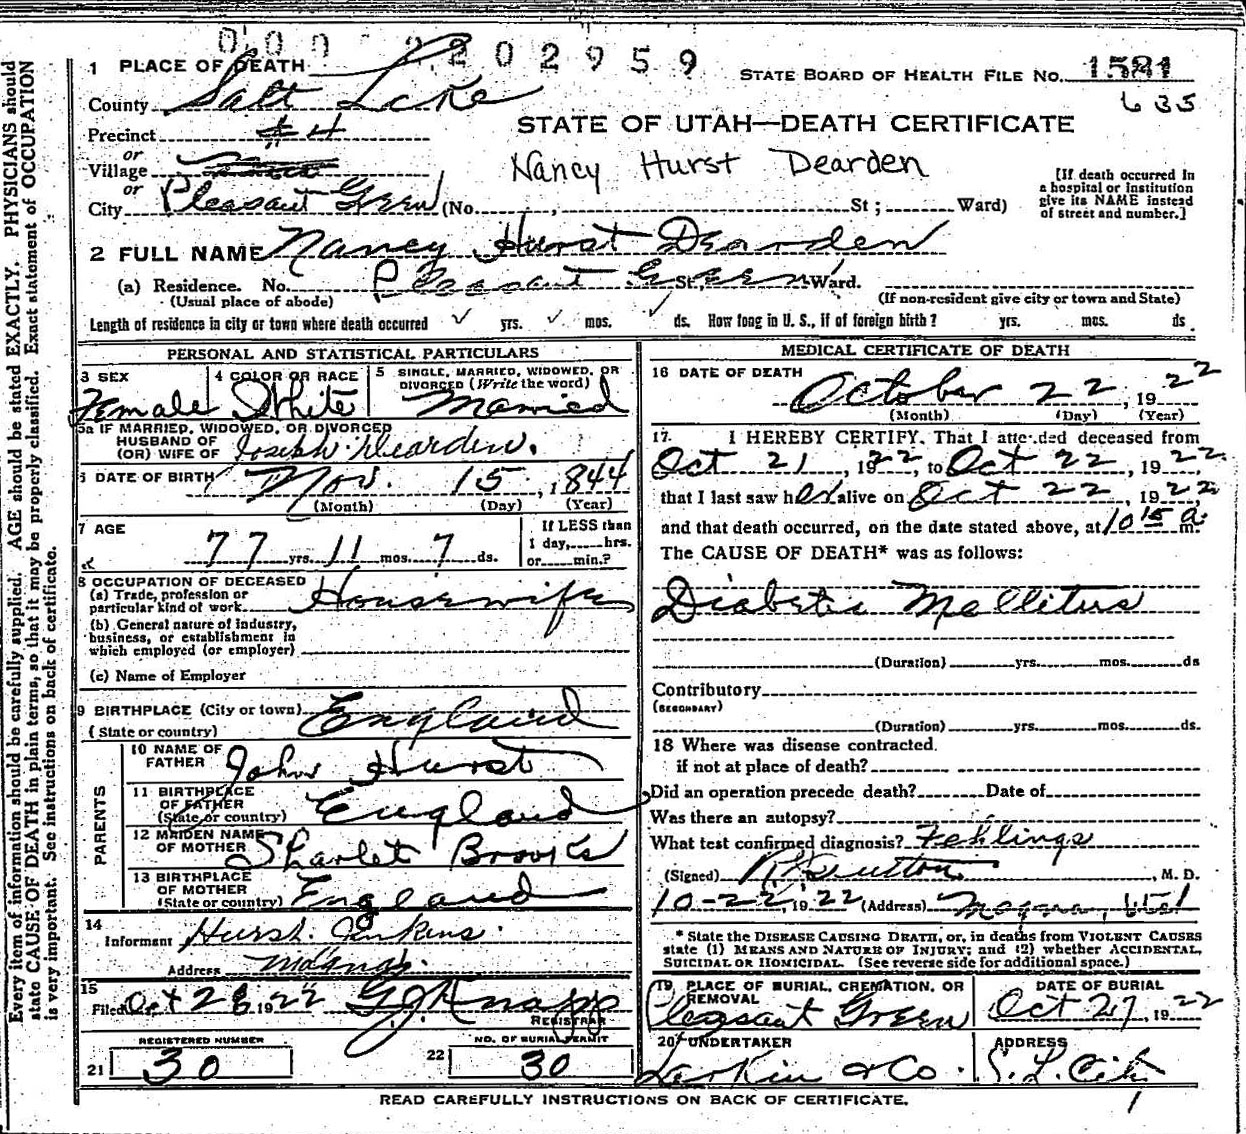 000 2202959
1 PLACE OF DEATH
STATE BOARD OF HEALTH FILE NO. 1581
635
County Salt Lake
STATE OF UTAH—DEATH CERTIFICATE
Precinct #4
Nancy Hurst Dearden
or
Village
or
City Pleasant Green (No. , St ; Ward)
[If death occurred in
a hospital or institution
give its NAME instead
of street and number.]
2 FULL NAME Nancy Hurst Dearden
(a) Residence. No. Pleasant Green St., Ward.
(Usual place of abode)
(If non-resident give city or town and State)
Length of residence in city or town where death occurred yrs. mos. ds. How long in U. S., if of foreign birth? yrs. mos. ds
PERSONAL AND STATISTICAL PARTICULARS
3 SEX
Female
4 COLOR OR RACE
White
5 SINGLE, MARRIED, WIDOWED, OR
DIVORCED (Write the word)
Married
5a IF MARRIED, WIDOWED, OR DIVORCED
HUSBAND OF
(OR) WIFE OF Joseph Dearden.
6 DATE OF BIRTH Nov. 15, 1844
(Month) (Day) (Year)
7 AGE
77 yrs. 11 mos. 7 ds.
If LESS than
1 day, hrs.
or min.?
8 OCCUPATION OF DECEASED
(a) Trade, profession or
particular kind of work Housewife
(b) General nature of industry,
business, or establishment in
which employed (or employer)
(c) Name of Employer
9 BIRTHPLACE (City or town)
(State or country) England
PARENTS
10 NAME OF
FATHER John Hurst
11 BIRTHPLACE
OF FATHER
(State or country) England
12 MAIDEN NAME
OF MOTHER Sharlet Brooks
13 BIRTHPLACE
OF MOTHER
(State or country) England
14
Informant Hurst. Jenkins.
Address Magna.
15
Filed Oct 28 1922 G.J. Knapp
REGISTRAR
REGISTERED NUMBER
21 30
NO. OF BURIAL PERMIT
22 30
MEDICAL CERTIFICATE OF DEATH
16 DATE OF DEATH
October 22, 1922
(Month) (Day) (Year)
17. I HEREBY CERTIFY, That I attended deceased from
Oct 21, 1922, to Oct 22, 1922,
that I last saw her alive on Oct 22, 1922,
and that death occurred, on the date stated above, at 10 15 a. m.
The CAUSE OF DEATH* was as follows:
Diabetis Mellitus
(Duration) yrs. mos. ds
Contributory
(SECONDARY)
(Duration) yrs. mos. ds.
18 Where was disease contracted.
if not at place of death?
Did an operation precede death? Date of
Was there an autopsy?
What test confirmed diagnosis? Fehlings
(Signed) , M. D.
10-22, 1922 (Address) Magna, Utah
* State the DISEASE CAUSING DEATH, or, in deaths from VIOLENT CAUSES
state (1) MEANS AND NATURE OF INJURY; and (2) whether ACCIDENTAL,
SUICIDAL OR HOMICIDAL. (See reverse side for additional space.)
19 PLACE OF BURIAL, CREMATION, OR
REMOVAL
Pleasant Green
DATE OF BURIAL
Oct 27, 1922
20 UNDERTAKER
Larkin & Co.
ADDRESS
S. L. City
READ CAREFULLY INSTRUCTIONS ON BACK OF CERTIFICATE.
Every item of information should be carefully supplied. AGE should be stated EXACTLY. PHYSICIANS should
state CAUSE OF DEATH in plain terms, so that it may be properly classified. Exact statement of OCCUPATION
is very important. See instructions on back of certificate.